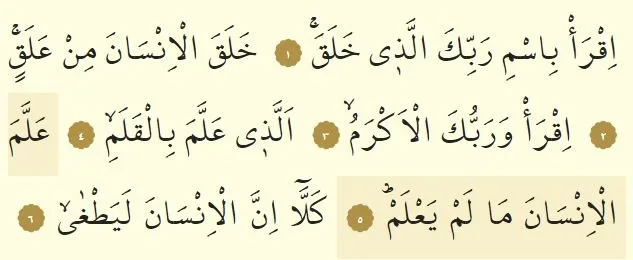 اِقْرَأْ بِاسْمِ رَبِّكَ الَّذ۪ي خَلَقَۚ ﴿١﴾ خَلَقَ الْاِنْسَانَ مِنْ عَلَقٍۚ
﴿٢﴾ اِقْرَأْ وَرَبُّكَ الْاَكْرَمُۙ ﴿٣﴾ اَلَّذ۪ي عَلَّمَ بِالْقَلَمِۙ ﴿٤﴾ عَلَّمَ
الْاِنْسَانَ مَا لَمْ يَعْلَمْۜ ﴿٥﴾ كَلَّٓا اِنَّ الْاِنْسَانَ لَيَطْغٰىۙ ﴿٦﴾